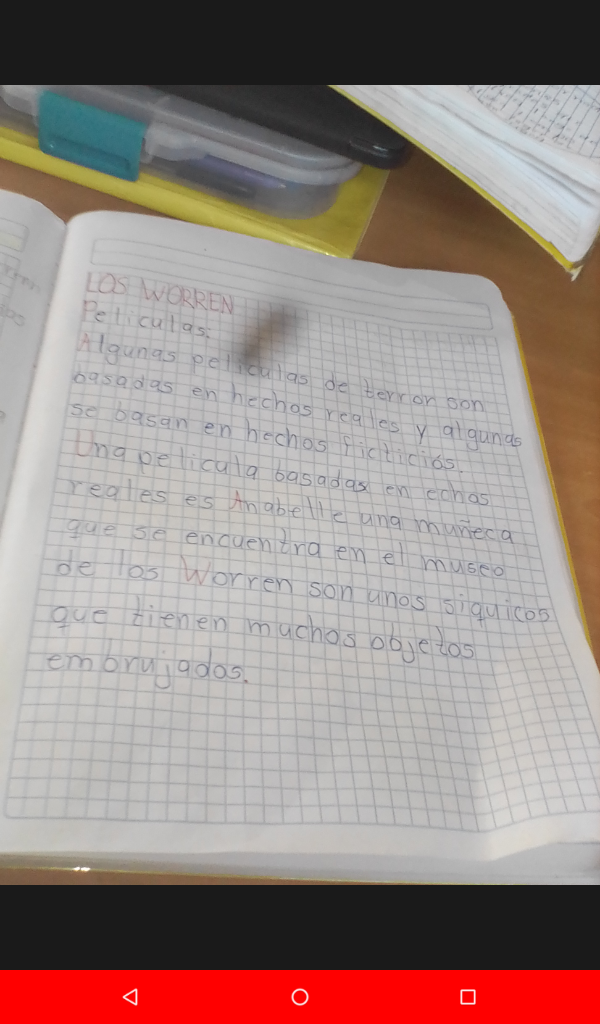 LOS WORREN
Peliculas:
Algunas peliculas de terror son
basadas en hechos reales y algunas
se basan en hechos ficticiós.
Una pelicula basadas en echos
reales es Anabelle una muñeca
que se encuentra en el museo
de los Worren son unos siquicos
que tienen muchos objetos
embrujados.